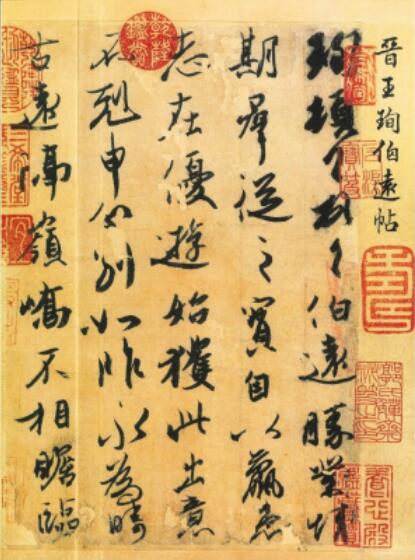 晋王珣伯遠帖
珣頓首頓首伯遠勝業情
期群從之寶自以羸患
志在優遊始獲此出意
不剋申分別如昨永為疇
古遠隔嶺嶠不相瞻臨
乾隆鑑賞